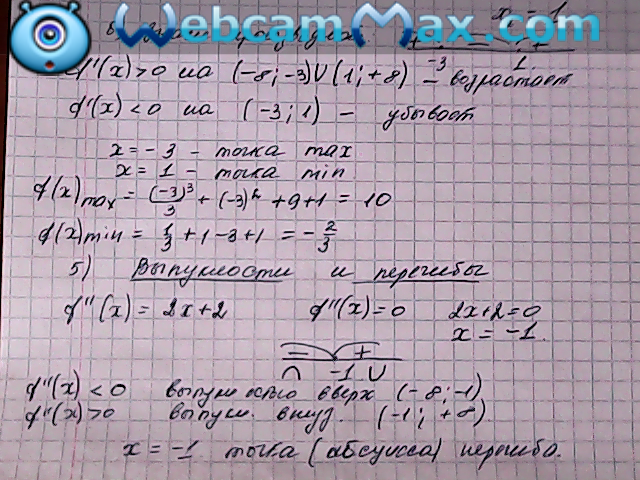 WebcamMax.com
x₂ = 1
+ - +
-3 1
f'(x) > 0 на (-8; -3) U (1; +8) - возрастает
f'(x) < 0 на (-3; 1) - убывает
x = -3 - точка max
x = 1 - точка min
f(x)max = (-3)³/3 + (-3)² + 9 + 1 = 10
f(x)min = 1/3 + 1 - 3 + 1 = -2/3
5) Выпуклости и перегибы
f''(x) = 2x + 2 f''(x) = 0 2x + 2 = 0
x = -1.
- +
∩ -1 U
f''(x) < 0 выпуклостью вверх (-8; -1)
f''(x) > 0 выпукл. вниз. (-1; +8)
x = -1 точка (абсцисса) перегиба.